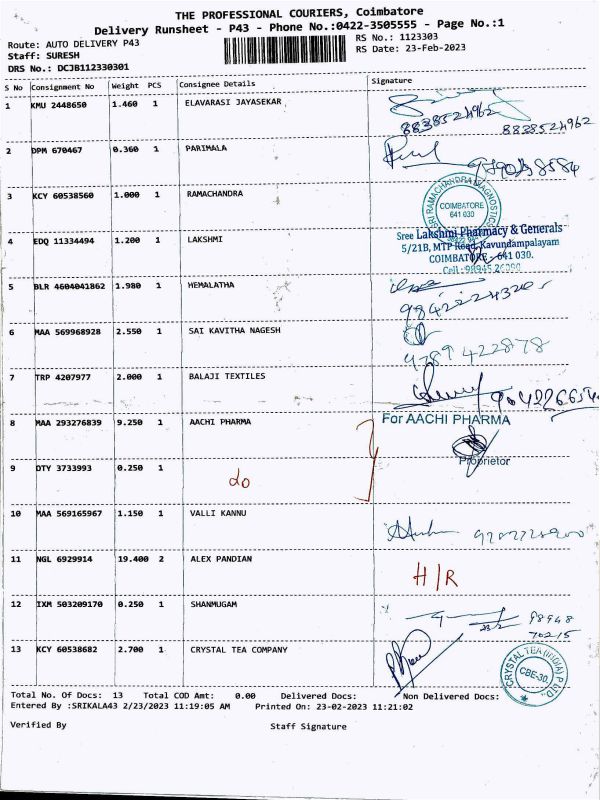 THE PROFESSIONAL COURIERS, Coimbatore
Delivery Runsheet - P43 - Phone No.:0422-3505555 - Page No.:1
Route: AUTO DELIVERY P43 RS No.: 1123303
Staff: SURESH RS Date: 23-Feb-2023
DRS No.: DCJB112330301
S No Consignment No Weight PCS Consignee Details Signature
1 KMU 2448650 1.460 1 ELAVARASI JAYASEKAR
8838524962 8838524962
2 DPM 670467 0.360 1 PARIMALA
3 KCY 60538560 1.000 1 RAMACHANDRA
SRI RAMACHANDRA DIAGNOSTIC
COIMBATORE
641 030
4 EDQ 11334494 1.200 1 LAKSHMI
Sree Lakshmi Pharmacy & Generals
5/21B, MTP Road, Kavundampalayam
COIMBATORE - 641 030.
5 BLR 4604041862 1.980 1 HEMALATHA
6 MAA 569968928 2.550 1 SAI KAVITHA NAGESH
9789422878
7 TRP 4207977 2.000 1 BALAJI TEXTILES
8 MAA 293276839 9.250 1 AACHI PHARMA
For AACHI PHARMA
Proprietor
9 DTY 3733993 0.250 1 do
10 MAA 569165967 1.150 1 VALLI KANNU
11 NGL 6929914 19.400 2 ALEX PANDIAN
H/R
12 IXM 503209170 0.250 1 SHANMUGAM
98948
70215
13 KCY 60538682 2.700 1 CRYSTAL TEA COMPANY
CRYSTAL TEA (INDIA) P LTD.
CBE-30
Total No. Of Docs: 13 Total COD Amt: 0.00 Delivered Docs: Non Delivered Docs:
Entered By :SRIKALA43 2/23/2023 11:19:05 AM Printed On: 23-02-2023 11:21:02
Verified By Staff Signature